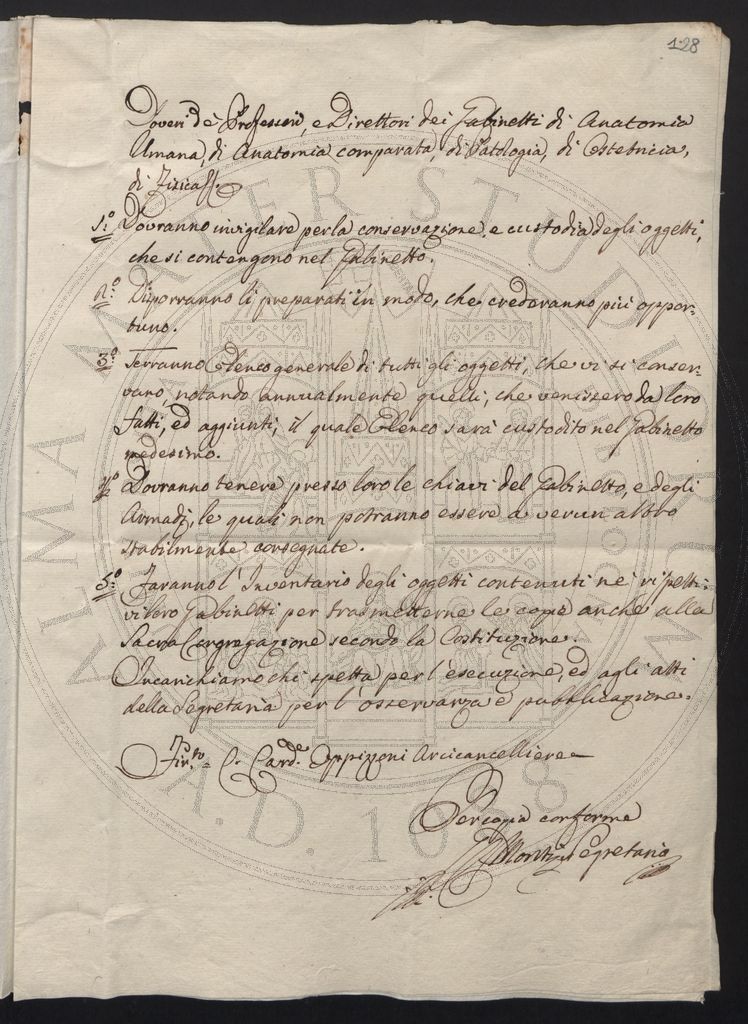 128
Doveri de' Professori, e Direttori dei Gabinetti di Anatomia
Umana, di Anatomia comparata, di Patologia, di Ostetricia,
di Fisica
1.º Dovranno invigilare per la conservazione, e custodia degli oggetti,
che si contengono nel Gabinetto.
2.º Disporranno li preparati in modo, che crederanno più oppor-
tuno.
3.º Terranno Elenco generale di tutti gli oggetti, che vi si conser-
vano, notando annualmente quelli, che venissero da loro
fatti, ed aggiunti; il quale Elenco sarà custodito nel Gabinetto
medesimo.
4.º Dovranno tenere presso loro le chiavi del Gabinetto, e degli
Armadj, le quali non potranno essere a verun altro
stabilmente consegnate.
5.º Faranno l'Inventario degli oggetti contenuti ne' rispetti-
vi loro Gabinetti per trasmetterne le copie anche alla
Sacra Congregazione secondo la Costituzione.
Incarichiamo chi spetta per l'esecuzione, ed agli atti
della Segretaria per l'osservanza e pubblicazione.
Firº = C. Card. Oppizzoni Arcicancelliere
Per copia conforme
Monti Segretario
ALMA MATER STUDIORUM
A.D. 1088